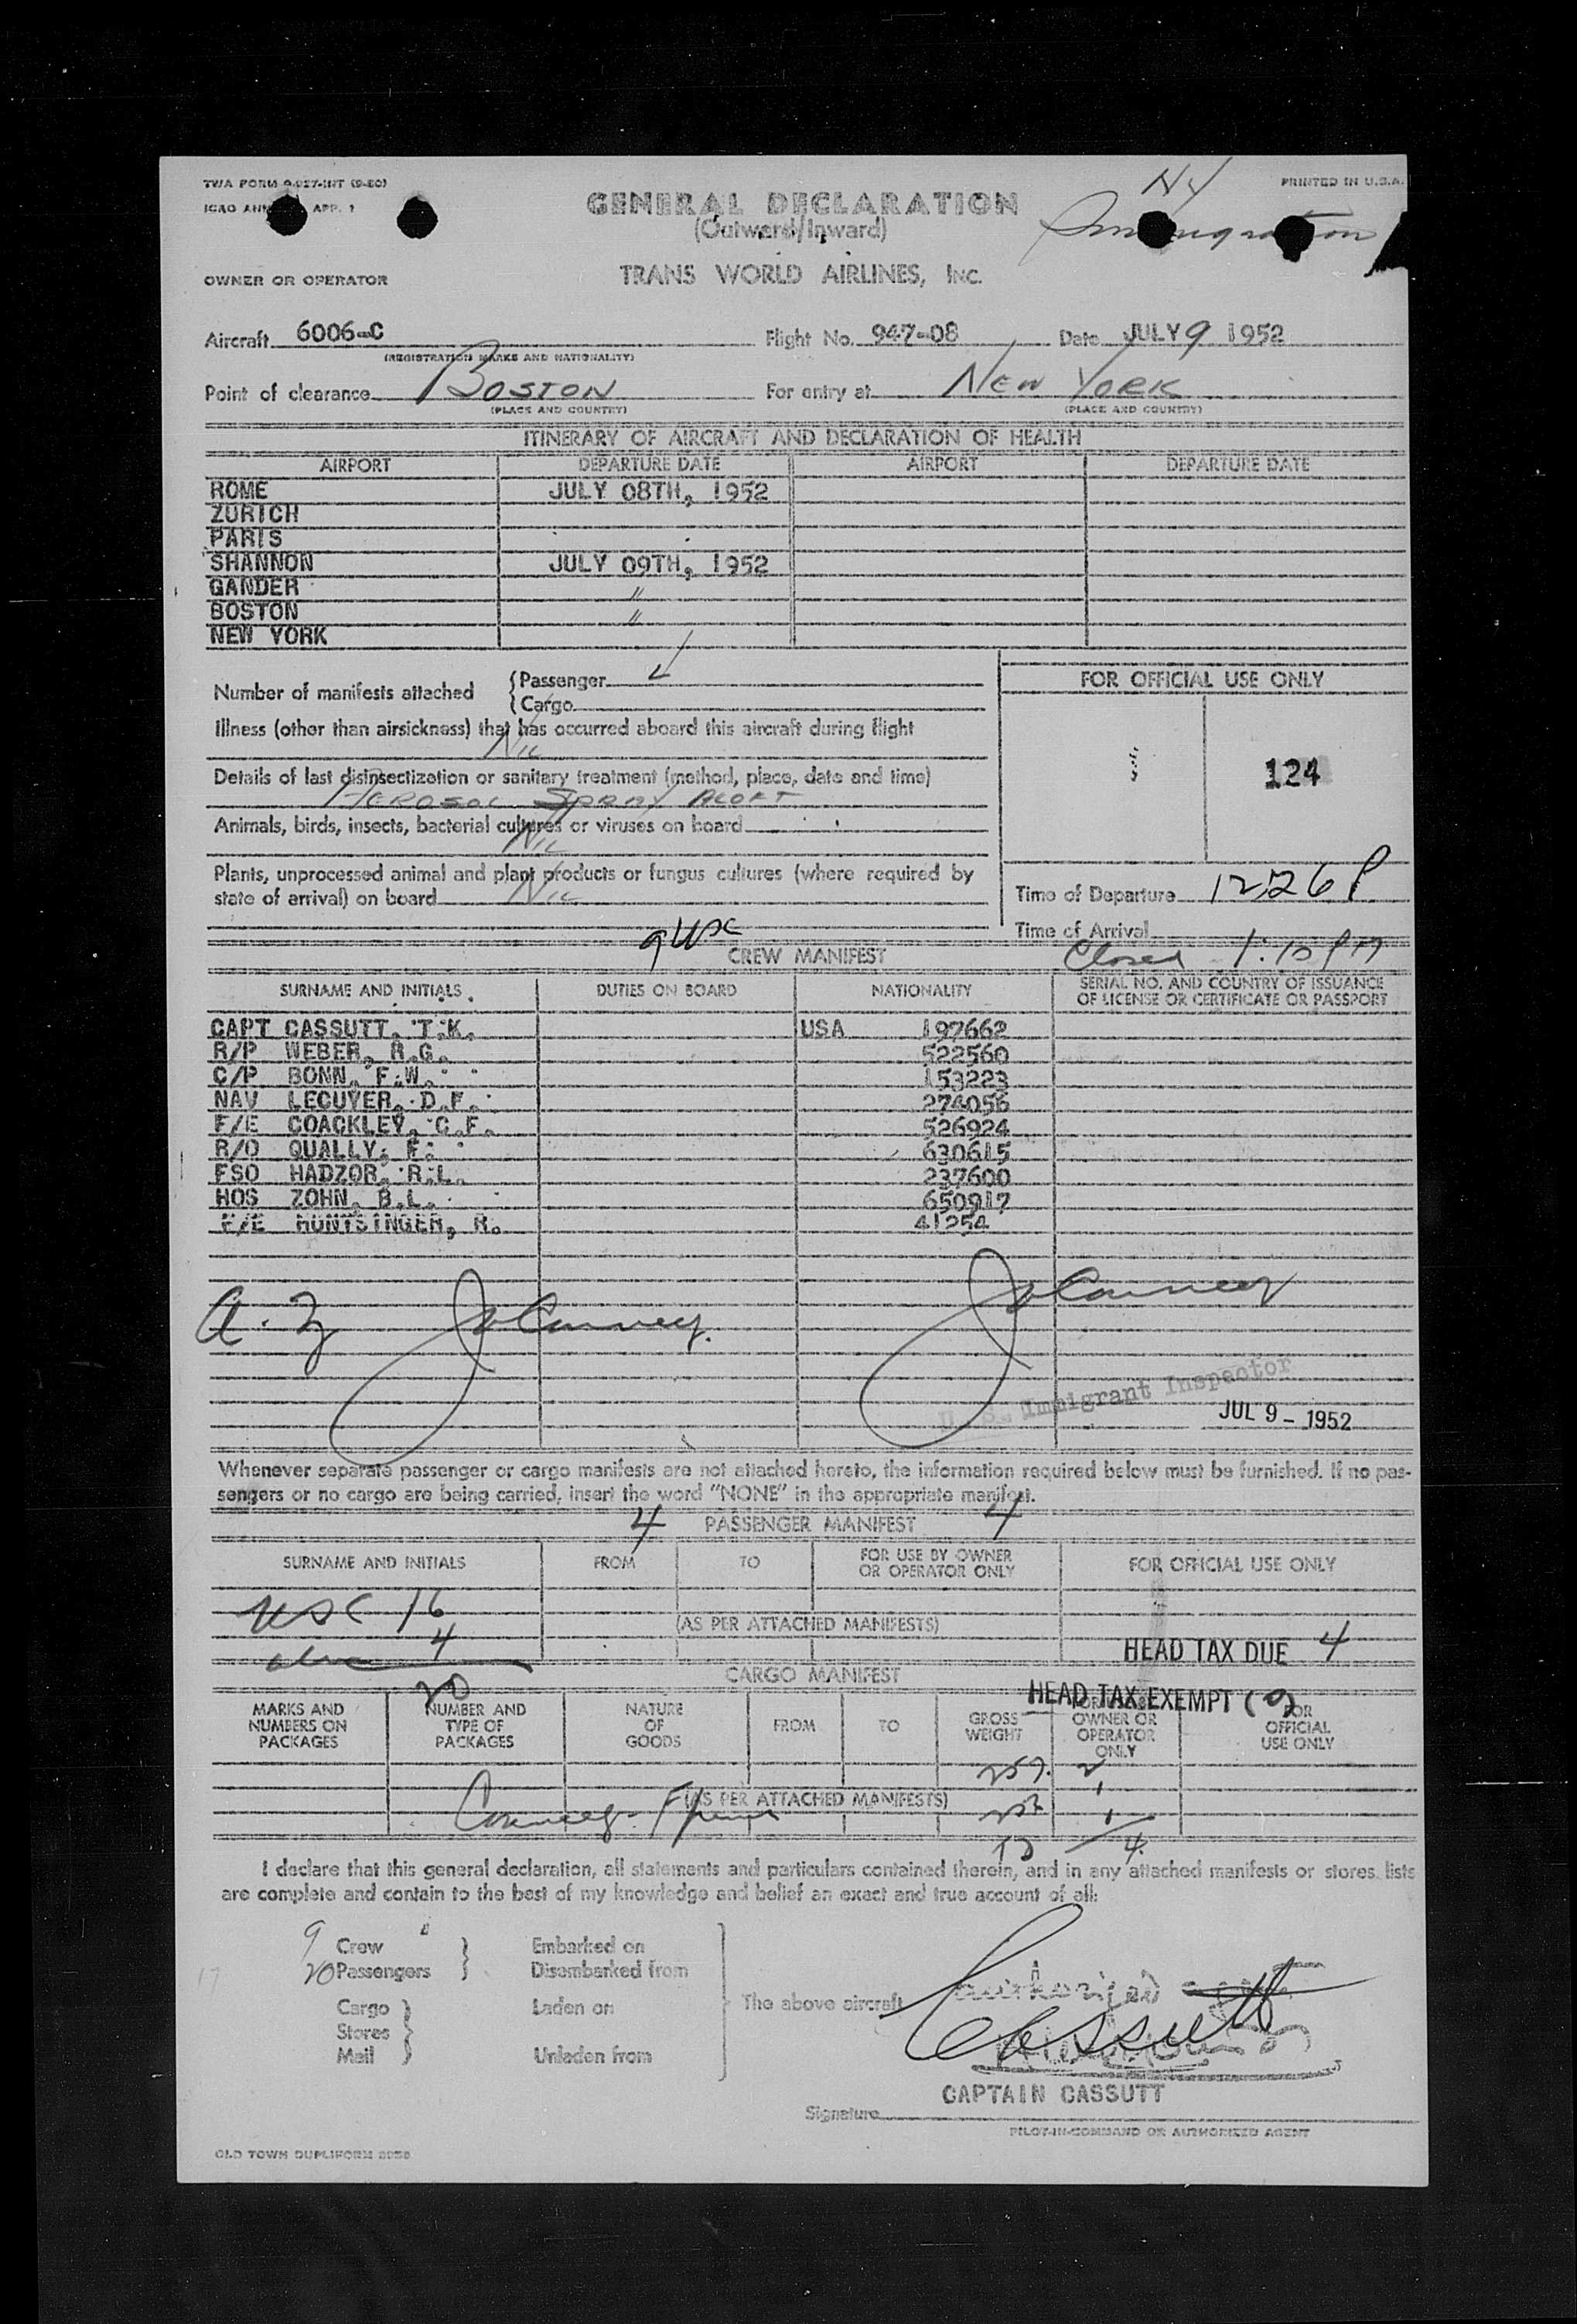 TWA FORM 9-027-INT (9-50)
PRINTED IN U.S.A.
ICAO APP. 1
NY
GENERAL DECLARATION
(Outward/Inward)
TRANS WORLD AIRLINES, INC.
OWNER OR OPERATOR
Aircraft 6006-C Flight No. 947-08 Date JULY 9 1952
(REGISTRATION MARKS AND NATIONALITY)
Point of clearance BOSTON For entry at NEW YORK
(PLACE AND COUNTRY) (PLACE AND COUNTRY)
ITINERARY OF AIRCRAFT AND DECLARATION OF HEALTH
AIRPORT DEPARTURE DATE AIRPORT DEPARTURE DATE
ROME JULY 08TH, 1952
ZURICH
PARIS
SHANNON JULY 09TH, 1952
GANDER "
BOSTON "
NEW YORK
Number of manifests attached { Passenger
{ Cargo
FOR OFFICIAL USE ONLY
Illness (other than airsickness) that has occurred aboard this aircraft during flight
NIL
124
Details of last disinsectization or sanitary treatment (method, place, date and time)
AEROSOL SPRAY ALOFT
Animals, birds, insects, bacterial cultures or viruses on board
NIL
Plants, unprocessed animal and plant products or fungus cultures (where required by
state of arrival) on board NIL
Time of Departure 12:26 P
Time of Arrival
9 USC
Closed 1:10 PM
CREW MANIFEST
SURNAME AND INITIALS DUTIES ON BOARD NATIONALITY SERIAL NO. AND COUNTRY OF ISSUANCE
OF LICENSE OR CERTIFICATE OR PASSPORT
CAPT CASSUTT, T.K. USA 197662
R/P WEBER, R.G. 522560
C/P BONN, F.W. 153223
NAV LECUYER, D.F. 274056
F/E COACKLEY, C.F. 526924
R/O QUALLY, E. 630615
FSO HADZOR, R.L. 237600
HOS ZOHN, B.L. 650917
F/E HUNTSINGER, R. 41254
U.S. Immigrant Inspector
JUL 9 - 1952
Whenever separate passenger or cargo manifests are not attached hereto, the information required below must be furnished. If no pas-
sengers or no cargo are being carried, insert the word "NONE" in the appropriate manifest.
4 PASSENGER MANIFEST 4
SURNAME AND INITIALS FROM TO FOR USE BY OWNER
OR OPERATOR ONLY FOR OFFICIAL USE ONLY
USC 16
(AS PER ATTACHED MANIFESTS)
4
HEAD TAX DUE 4
20
CARGO MANIFEST
HEAD TAX EXEMPT
MARKS AND
NUMBERS ON
PACKAGES NUMBER AND
TYPE OF
PACKAGES NATURE
OF
GOODS FROM TO GROSS
WEIGHT OWNER OR
OPERATOR
ONLY FOR
OFFICIAL
USE ONLY
(AS PER ATTACHED MANIFESTS)
I declare that this general declaration, all statements and particulars contained therein, and in any attached manifests or stores lists
are complete and contain to the best of my knowledge and belief an exact and true account of all:
9 Crew Embarked on
20 Passengers Disembarked from
Cargo Laden on
Stores
Mail Unladen from
The above aircraft
Cassutt
CAPTAIN CASSUTT
Signature
PILOT-IN-COMMAND OR AUTHORIZED AGENT
OLD TOWN DUPLIFORM